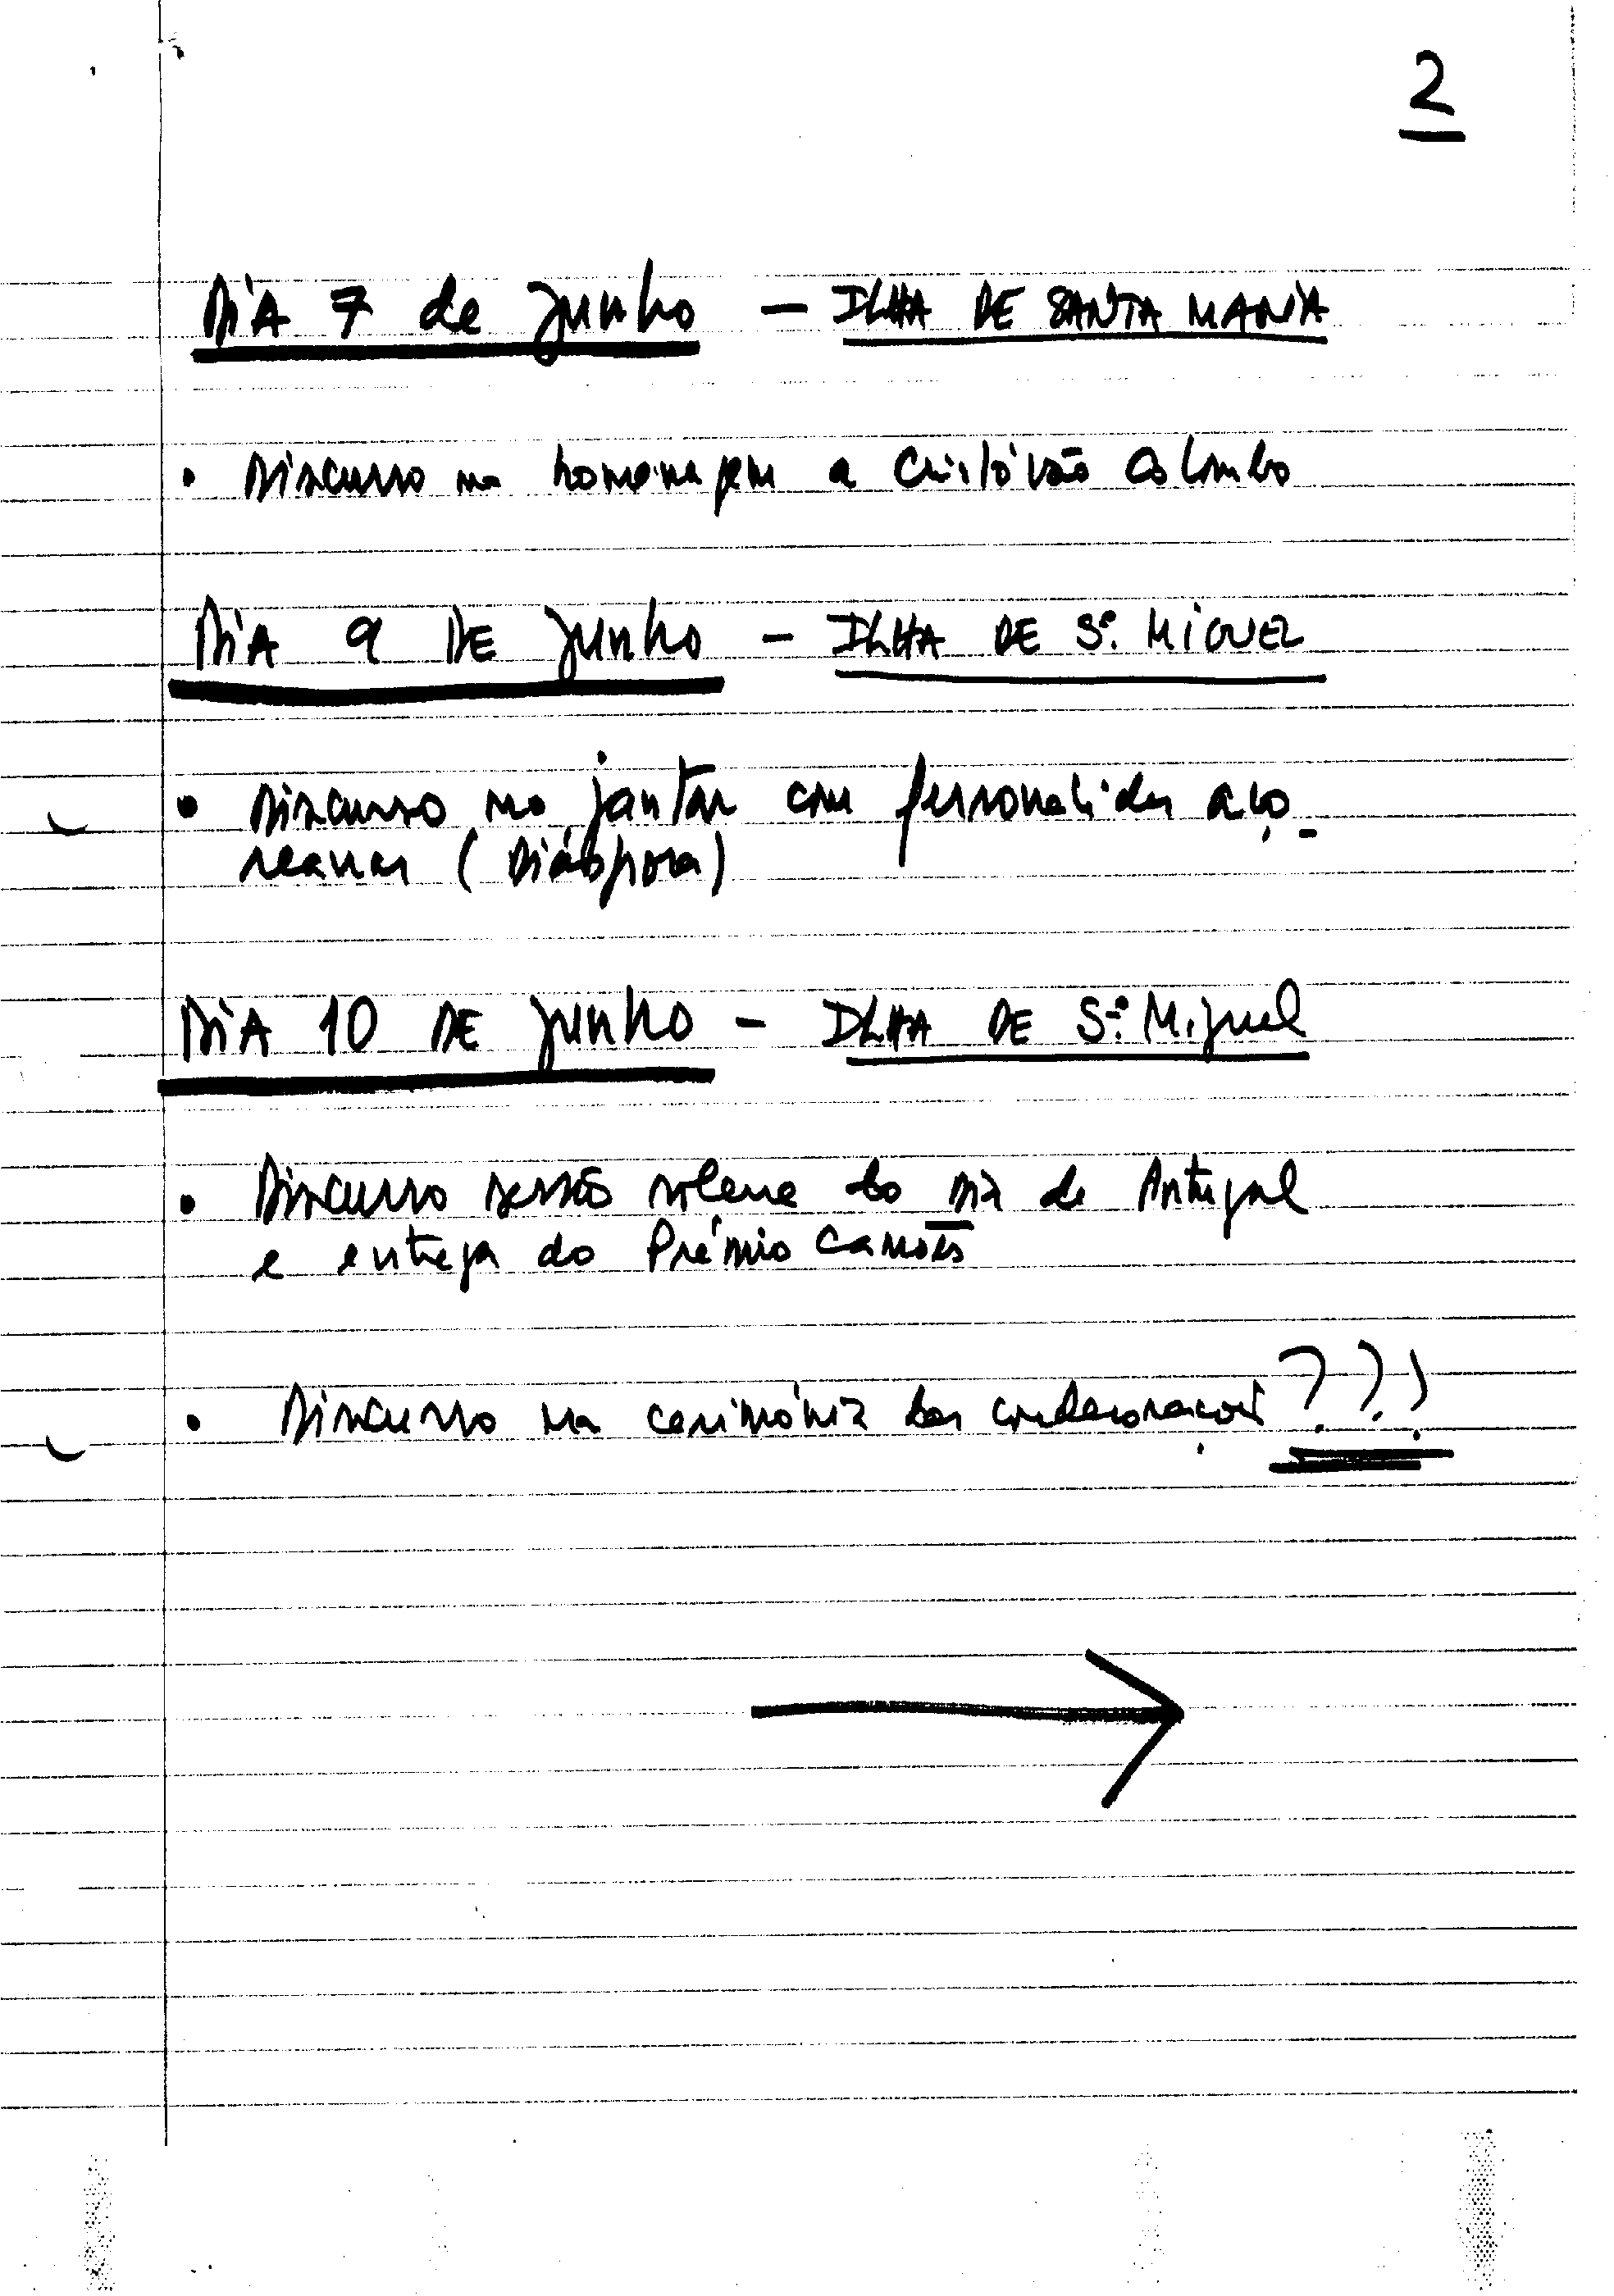 2
DIA 7 de Junho – ILHA DE SANTA MARIA
• Discurso na homenagem a Cristóvão Colombo
DIA 9 DE Junho – ILHA DE S. MIGUEL
• Discurso no jantar com personalidades aço-
reanas (Diáspora)
DIA 10 DE Junho – ILHA DE S. Miguel
• Discurso sessão solene do Dia de Portugal
e entrega do Prémio Camões
• Discurso na cerimónia das condecorações ???